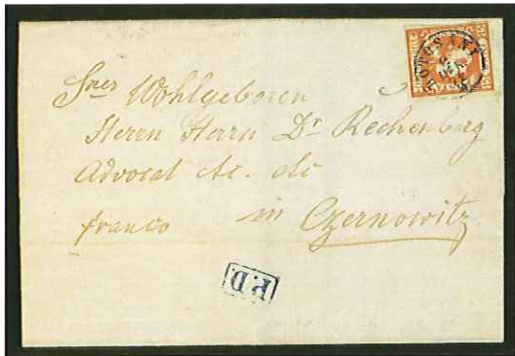 BOTOSANI
Sner Wohlgeboren
Herrn Herrn Dr Rechenberg
Advocat etc. etc
franco in Czernowitz
P.D.